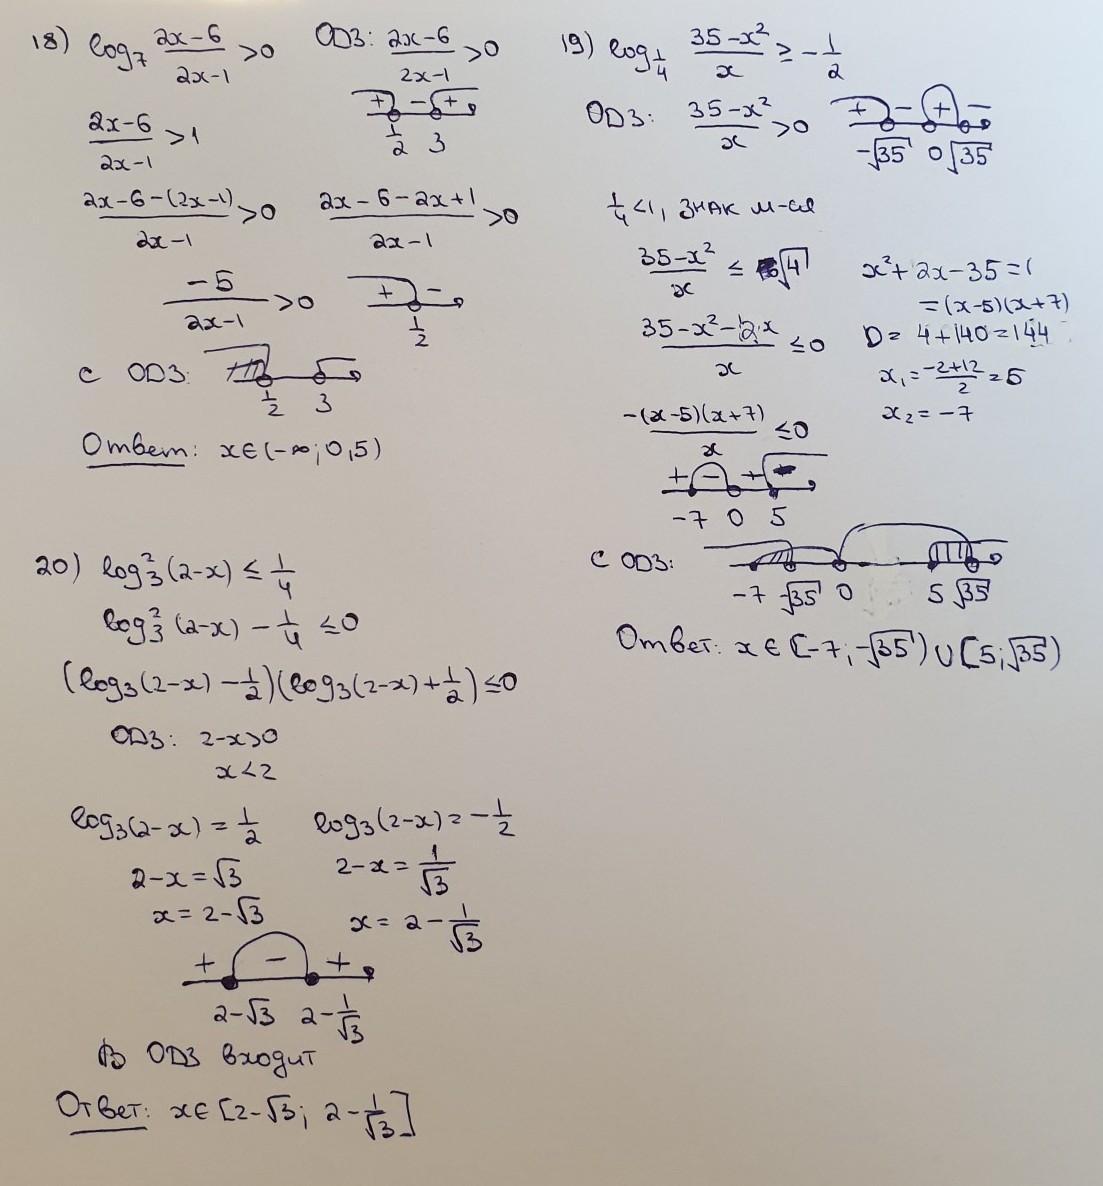 18) log₇ (2x-6)/(2x-1) >0 ОДЗ: (2x-6)/(2x-1) >0
+ - +
1/2 3
(2x-6)/(2x-1) >1
(2x-6-(2x-1))/(2x-1) >0 (2x-6-2x+1)/(2x-1) >0
-5/(2x-1) >0 + -
1/2
с ОДЗ:
1/2 3
Ответ: x∈(-∞;0,5)
19) log_{1/4} (35-x²)/x ≥ -1/2
ОДЗ: (35-x²)/x >0 + - + -
-√35 0 √35
1/4<1, знак м-ся
(35-x²)/x ≤ √4
(35-x²-2x)/x ≤0
-(x-5)(x+7)/x ≤0
+ - + -
-7 0 5
x²+2x-35=
=(x-5)(x+7)
D= 4+140=144
x₁=(-2+12)/2=5
x₂=-7
с ОДЗ:
-7 -√35 0 5 √35
Ответ: x∈[-7;-√35)∪[5;√35)
20) log₃²(2-x) ≤ 1/4
log₃²(2-x) - 1/4 ≤0
(log₃(2-x) - 1/2)(log₃(2-x)+1/2) ≤0
ОДЗ: 2-x>0
x<2
log₃(2-x) = 1/2 log₃(2-x)= -1/2
2-x=√3 2-x= 1/√3
x=2-√3 x= 2- 1/√3
+ - +
2-√3 2-1/√3
В ОДЗ входит
Ответ: x∈[2-√3; 2-1/√3]